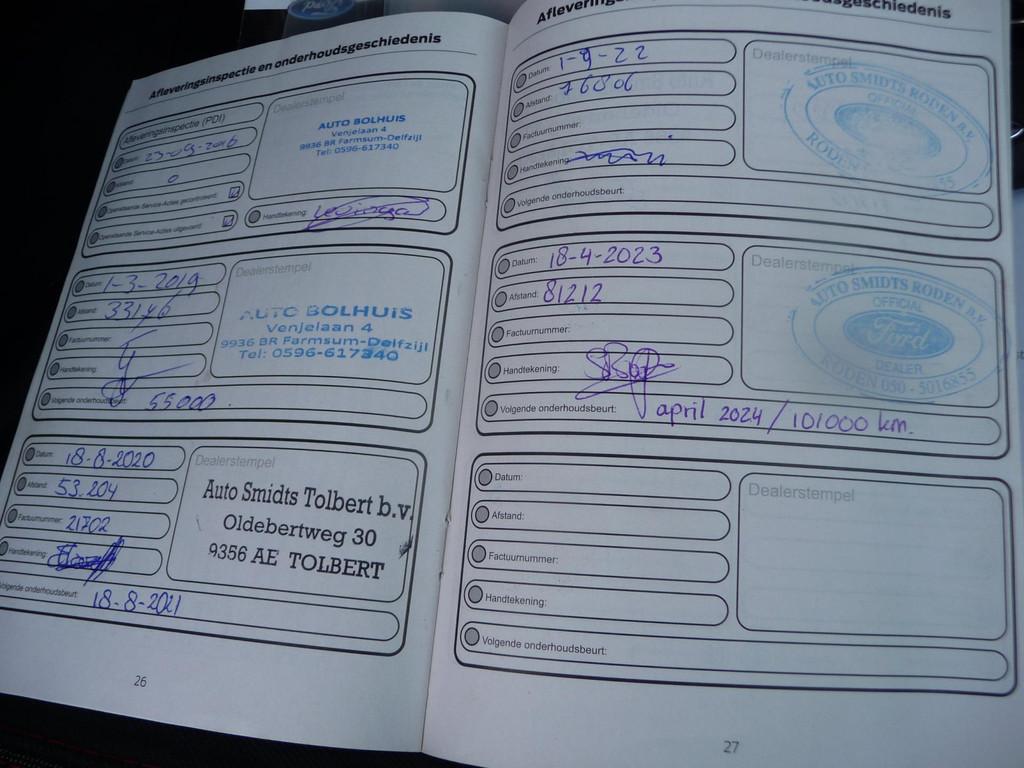 Afleveringsinspectie en onderhoudsgeschiedenis
Afleveringsinspectie (PDI)
Datum: 23-09-2016
Afstand: 0
Openstaande Service-Acties gecontroleerd:
Openstaande Service-Acties uitgevoerd:
Dealerstempel
AUTO BOLHUIS
Venjelaan 4
9936 BR Farmsum-Delfzijl
Tel: 0596-617340
Handtekening:
Datum: 1-3-2019
Afstand: 33146
Factuurnummer:
Handtekening:
Volgende onderhoudsbeurt: 55000
Dealerstempel
AUTO BOLHUIS
Venjelaan 4
9936 BR Farmsum-Delfzijl
Tel: 0596-617340
Datum: 18-8-2020
Afstand: 53.204
Factuurnummer: 21702
Handtekening:
Volgende onderhoudsbeurt: 18-8-2021
Dealerstempel
Auto Smidts Tolbert b.v.
Oldebertweg 30
9356 AE TOLBERT
26
Datum: 1-9-22
Afstand: 76806
Factuurnummer:
Handtekening:
Volgende onderhoudsbeurt:
Dealerstempel
AUTO SMIDTS RODEN B.V.
OFFICIAL
RODEN
Datum: 18-4-2023
Afstand: 81212
Factuurnummer:
Handtekening:
Volgende onderhoudsbeurt: april 2024 / 101000 km.
Dealerstempel
AUTO SMIDTS RODEN B.V.
OFFICIAL
Ford
DEALER
RODEN 050 - 5016855
Datum:
Afstand:
Factuurnummer:
Handtekening:
Volgende onderhoudsbeurt:
Dealerstempel
27